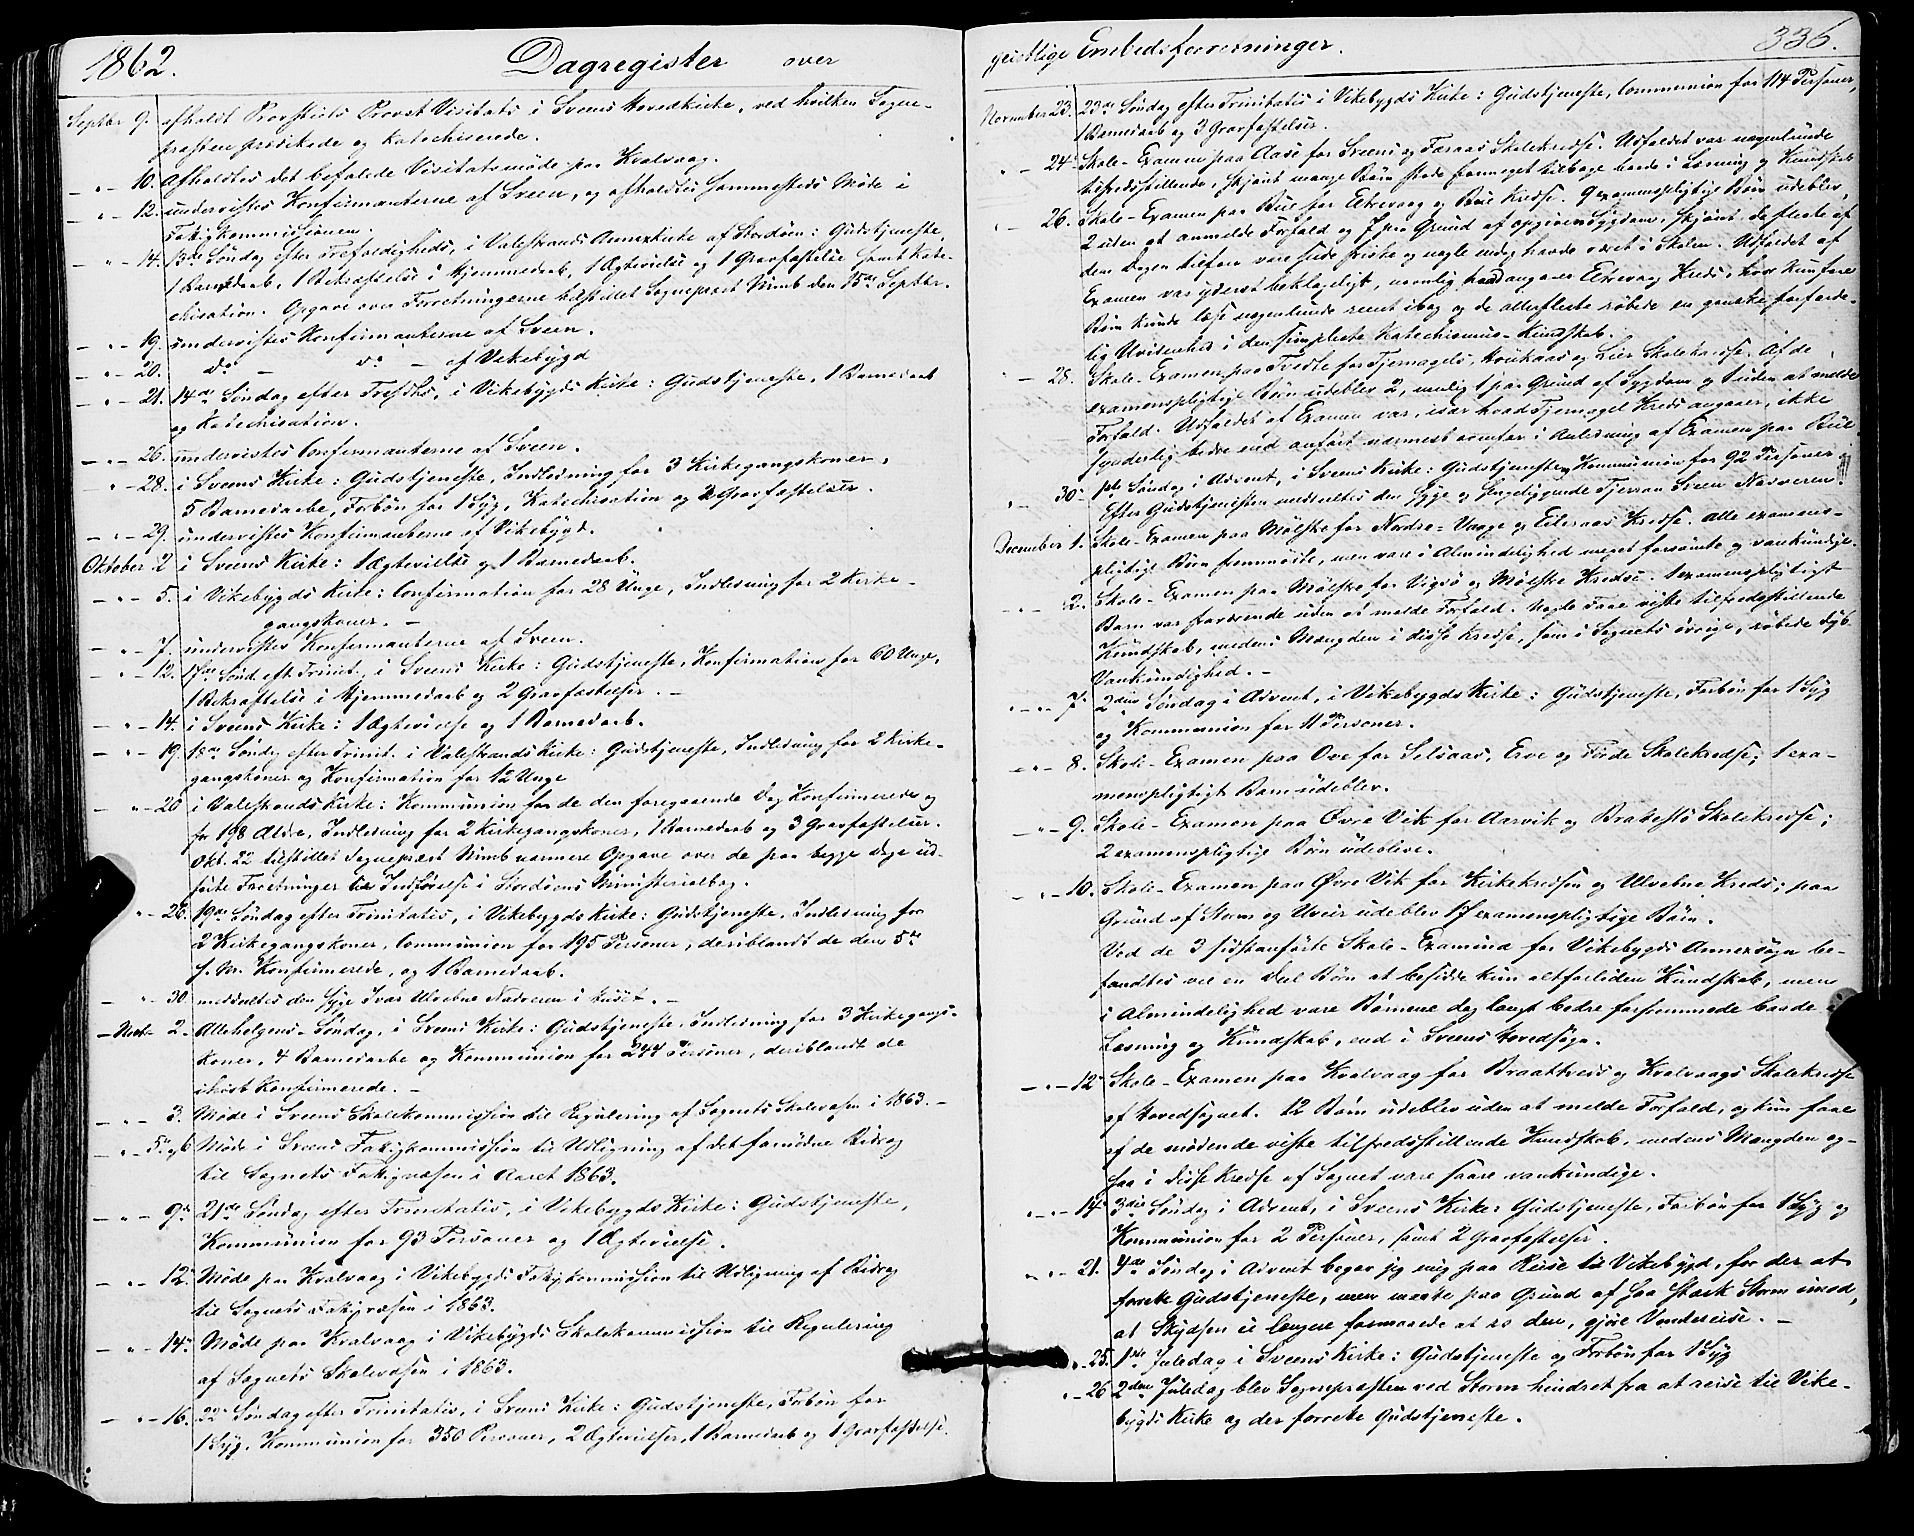 1862.
Dagregister over
Septbr 9. afholdt Provstiets Provst Visitats i Sveens Hovedkirke, ved hvilken Sogne-
præsten prædikede og Katechiserede.
— " — 10. Afholdtes det befalede Visitatsmöde paa Kvalvaag.
— " — 12. undervistes Konfirmanterne af Sveen, og afholdtes sammesteds Möde i
Fattigkommissionen.
— " — 14. 13de Söndag efter Trefoldigheds, i Valestrands Annexkirke af Stordöen: Gudstjeneste,
1 Barnedaab, 1 Bekræftelse i Hjemmedaab, 1 Ægtevielse og 1 Gravfæstelse samt Kate-
chisation. Opgave over Forretningerne tilstillet Sognepræst Nimb den 15de Septbr.
— " — 19. undervistes Konfirmanterne af Sveen.
— " — 20. do — do — af Vikebygd
— " — 21. 14de Söndag efter Trefdhs, i Vikebygds Kirke: Gudstjeneste, 1 Barnedaab
og Katechisation.
— " — 26. undervistes Confirmanterne af Sveen.
" — 28. i Sveens Kirke: Gudstjeneste, Indledning for 3 Kirkegangskoner,
5 Barnedaabe, Forbön for 1 Syg, Katechisation og 2 Gravfæstelser.
— " — 29. undervistes Konfirmanterne af Vikebygd.
Oktober 2 i Sveens Kirke: 1 Ægtevielse og 1 Barnedaab.
— " — 5. i Vikebygds Kirke: Confirmation for 28 Unge, Indledning for 2 Kirke-
gangskoner. —
— " — 7. undervistes Konfirmanterne af Sveen.
— " — 12. 17de Sönd. eft. Trinit., i Sveens Kirke: Gudstjeneste, Konfirmation for 60 Unge,
1 Bekræftelse i Hjemmedaab og 2 Gravfæstelser. —
— " — 14. i Sveens Kirke: 1 Ægtevielse og 1 Barnedaab.
— " — 19. 18de Sönd. efter Trinit. i Valestrands Kirke: Gudstjeneste, Indledning for 2 Kirke-
gangskoner og Konfirmation for 12 Unge
— " — 20 i Valestrands Kirke: Kommunion for de den foregaaende Dag Konfirmerede og
for 198 Ældre, Indledning for 2 Kirkegangskoner, 1 Barnedaab og 3 Gravfæstelser.
Okt. 22 tilstillet Sognepræst Nimb nærmere Opgave over de paa begge Dage ud-
förte Forretninger til Indförelse i Stordöens Ministerialbog.
" — 26. 19de Söndag efter Trinitatis, i Vikebygds Kirke: Gudstjeneste, Indledning for
2 Kirkegangskoner, Communion for 195 Personer, deriblandt de den 5te
f. M. Konfirmerede, og 1 Barnedaab.
— " — 30. meddeltes den syge Ivar Ulvebne Nadveren i Huset. —
— Novbr 2. Allehelgens-Söndag, i Sveens Kirke: Gudstjeneste, Indledning for 3 Kirkegangs-
koner, 4 Barnedaabe og Kommunion for 244 Personer, deriblandt de
ihöst Konfirmerede. —
— " — 3. Möde i Sveens Skolekommission til Regulering af Sognets Skolevæsen i 1863. —
" — 5te og 6 Möde i Sveens Fattigkommission til Udligning af det fornödne Bidrag
til Sognets Fattigvæsen i Aaret 1863.
— " — 9de 21de Söndag efter Trinitatis, i Vikebygds Kirke: Gudstjeneste,
Kommunion for 93 Personer og 1 Ægtevielse.
— " — 12te Möde paa Kvalvaag i Vikebygds Fattigkommission til Udligning af Bidrag
til Sognets Fattigvæsen i 1863.
— " — 14de Möde paa Kvalvaag i Vikebygds Skolekommission til Regulering
af Sognets Skolevæsen i 1863.
— " — 16. 22de Söndag efter Trinitatis, i Sveens Kirke: Gudstjeneste, Forbön for
1 Syg, Kommunion for 350 Personer, 2 Ægtevielser, 1 Barnedaab og 1 Gravfæstelse.
geistlige Embedsforretninger.
336.
November 23. 23de Söndag efter Trinitatis i Vikebygds Kirke: Gudstjeneste, Communion for 114 Personer,
1 Barnedaab og 3 Gravfæstelser.
" — 24de Skole-Examen paa Aase for Sveens og Færaas Skolekredse. Udfaldet var nogenlunde
tilfredsstillende, skjönt mange Börn stode særmeget tilbage baade i Læsning og Kundskab
" — 26. Skole-Examen paa Bue for Elvevaag og Bue Kredse. 9 examenspligtige Börn udeblev,
2 uden at anmelde Forfald og 7 paa Grund af opgiven Sygdom, skjönt de fleste af
dem Dagen tilforn vare seede friske og nogle endog havde været i Skolen. Udfaldet af
Examen var yderst beklageligt, navnlig hvad angaaer Elvevaag Kreds, hvor kun faae
Börn kunde læse nogenlunde reent i bog og de allerfleste röbede en ganske forfærde-
lig Uvidenhed i den simpleste Katechismus-Kundskab.
" — 28. Skole-Examen paa Tvedte for Tjernagels, Houkaas og Lier Skolekredse. Af de
examenspligtige Börn udeblev 2, nemlig 1 paa Grund af Sygdom og 1 uden at melde
Forfald. Udfaldet af Examen var, især hvad Tjernagel Kreds angaaer, ikke
synderlig bedre end anfört nærmest ovenfor i Anledning af Examen paa Bue.
" — 30. 1ste Söndag i Advent, i Sveens Kirke: Gudstjeneste, Kommunion for 92 Personer.
Efter Gudstjenesten meddeltes den syge og sengeliggende Tjerran Sveen Nadveren.
December 1. Skole-Examen paa Mölste for Nordre-Vaage og Eilernes Kredse. Alle examens-
pligtige Börn fremmödte, men vare i Almindelighed meget forsömte og vankundige.
— " — 2. Skole-Examen paa Mölste for Vigsö og Mölste Kredse. 1 examenspligtigt
Barn var fraværende uden at melde Forfald. Nogle Faae viste tilfredsstillende
Kundskab, medens Mængden i disse Kredse, som i Sognets övrige, röbede dyb
Vankundighed. —
" — " — 7de 2den Söndag i Advent, i Vikebygds Kirke: Gudstjeneste, Forbön for 1 Syg
og Kommunion for 11 Personer.
— " — 8. Skole-Examen paa Ove for Silsaas, Erve og Förde Skolekredse; 1 exa-
menspligtigt Barn udeblev.
— " — 9. Skole-Examen paa Övre Vik for Aarvik og Bratests Skolekredse;
2 examenspligtige Börn udebleve.
— " — 10. Skole-Examen paa Övre Vik for Kirkekredsen og Ulvebne Kreds; paa
Grund af Storm og Uveir udeblev 17 examenspligtige Börn.
Ved de 3 sidstanförte Skole-Examina for Vikebygds Annexsogn be-
fandtes vel en Deel Börn at besidde kun altforliden Kundskab, men
i Almindelighed vare Börnene dog langt bedre forfremmede baade i
Læsning og Kundskab, end i Sveens Hovedsogn.
— " — 12te Skole-Examen paa Kvalvaag for Braatveits og Kvalvaags Skolekredse
af Hovedsognet. 12 Börn udeblev uden at melde Forfald, og kun faae
af de mödende viste tilfredsstillende Kundskab, medens Mængden og-
saa i disse Kredse af Sognet vare saare vankundige.
" — " — 14de 3die Söndag i Advent, i Sveens Kirke: Gudstjeneste, Forbön for 1 Syg og
Kommunion for 2 Personer, samt 2 Gravfæstelser.
" — " — 21. 4de Söndag i Advent begav jeg mig paa Reise til Vikebygd, for der at
forrette Gudstjeneste, men maatte paa Grund af saa stærk Storm imod,
at Skydsen ei længere formaaede at ro den, gjöre Vendereise. —
" — 25. 1ste Juledag i Sveens Kirke: Gudstjeneste og Forbön for 1 Syg
" — 26 2den Juledag blev Sognepræsten ved Storm hindret fra at reise til Vike-
bygds Kirke og der forrette Gudstjeneste.